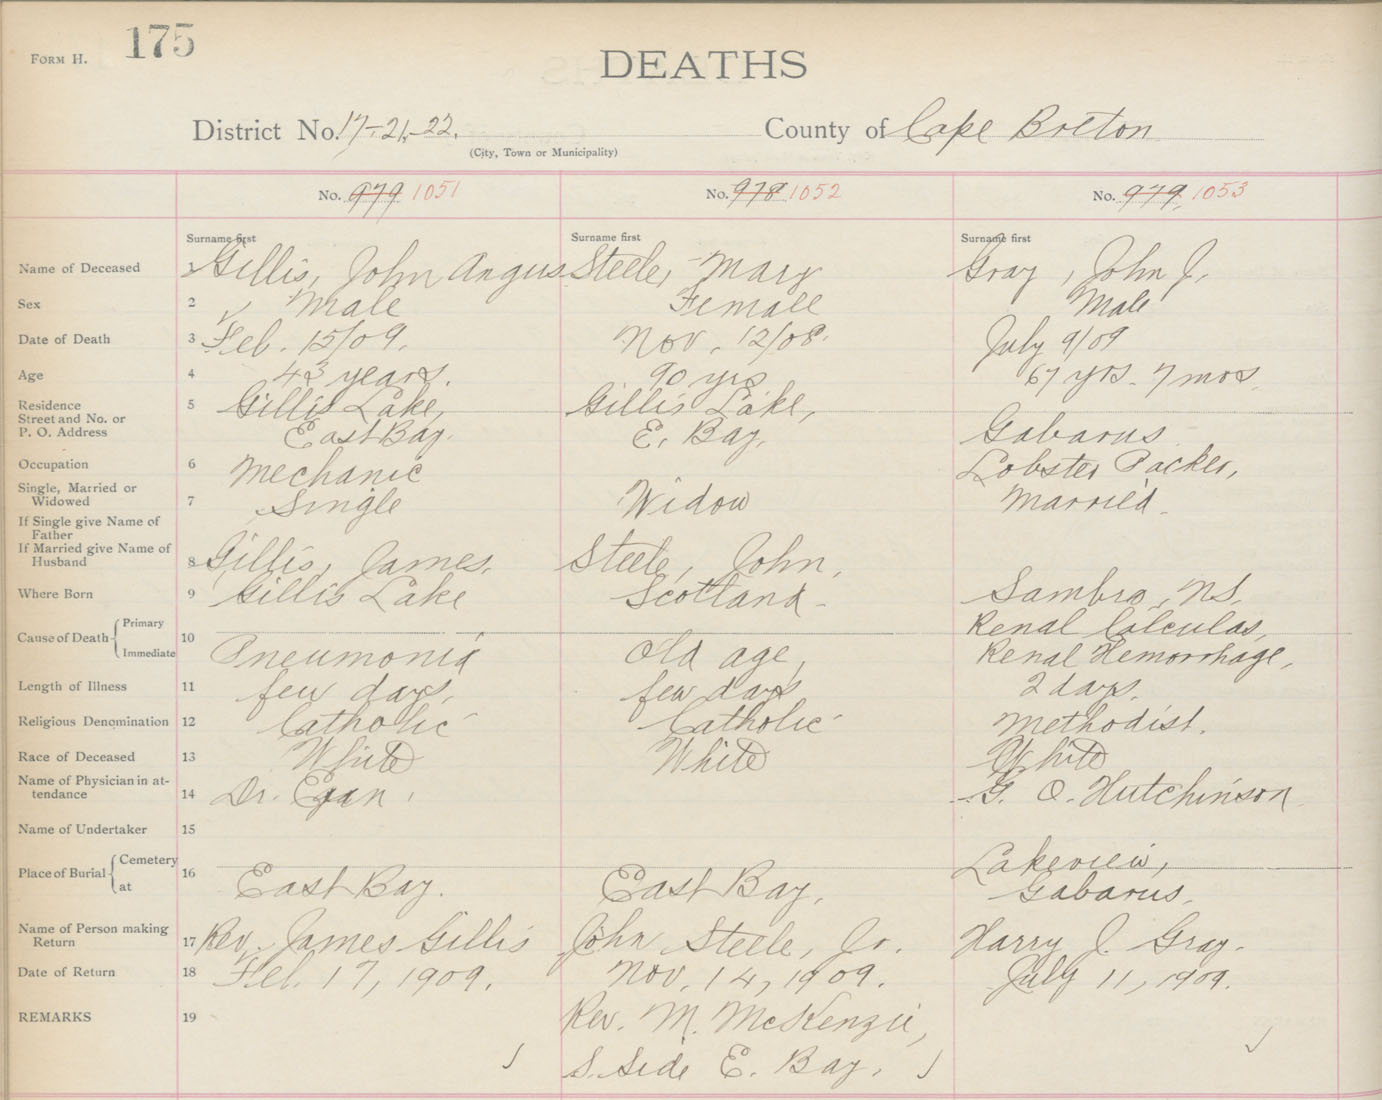 Form H. 175
DEATHS
District No. 17-21-22. County of Cape Breton
(City, Town or Municipality)
No. 979 1051 No. 978 1052 No. 979. 1053
Surname first Surname first Surname first
Name of Deceased 1 Gillis, John Angus Steele, Mary Gray, John J.
Sex 2 Male Female Male
Date of Death 3 Feb. 15/09. Nov. 12/08. July 9/09
Age 4 43 years. 90 yrs 67 yrs. 7 mos
Residence 5 Gillis Lake, Gillis Lake,
Street and No. or
P. O. Address East Bay. E. Bay, Gabarus
Occupation 6 Mechanic Lobster Packer,
Single, Married or
Widowed 7 Single Widow Married.
If Single give Name of
Father
If Married give Name of
Husband 8 Gillis, James, Steele, John,
Where Born 9 Gillis Lake Scotland - Sambro, N.S.
Cause of Death Primary 10 Renal Calculas,
Immediate Pneumonia Old age, Renal Hemorrhage,
Length of Illness 11 few days, few days 2 days.
Religious Denomination 12 Catholic Catholic Methodist.
Race of Deceased 13 White White White
Name of Physician in at-
tendance 14 Dr. Egan, G. O. Hutchinson
Name of Undertaker 15
Place of Burial Cemetery 16 Lakeview,
at East Bay. East Bay, Gabarus,
Name of Person making
Return 17 Rev. James Gillis John Steele, Jr. Harry J. Gray.
Date of Return 18 Feb. 17, 1909. Nov. 14, 1909. July 11, 1909.
REMARKS 19 Rev. M. McKenzie,
S. Side E. Bay,